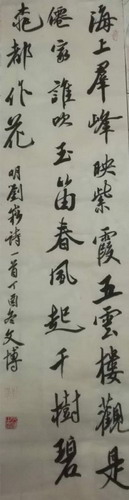 海上羣峰映紫霞五雲樓觀是
僊家誰吹玉笛春風起千樹碧
桃都作花
明劉崧詩一首丁酉冬文博